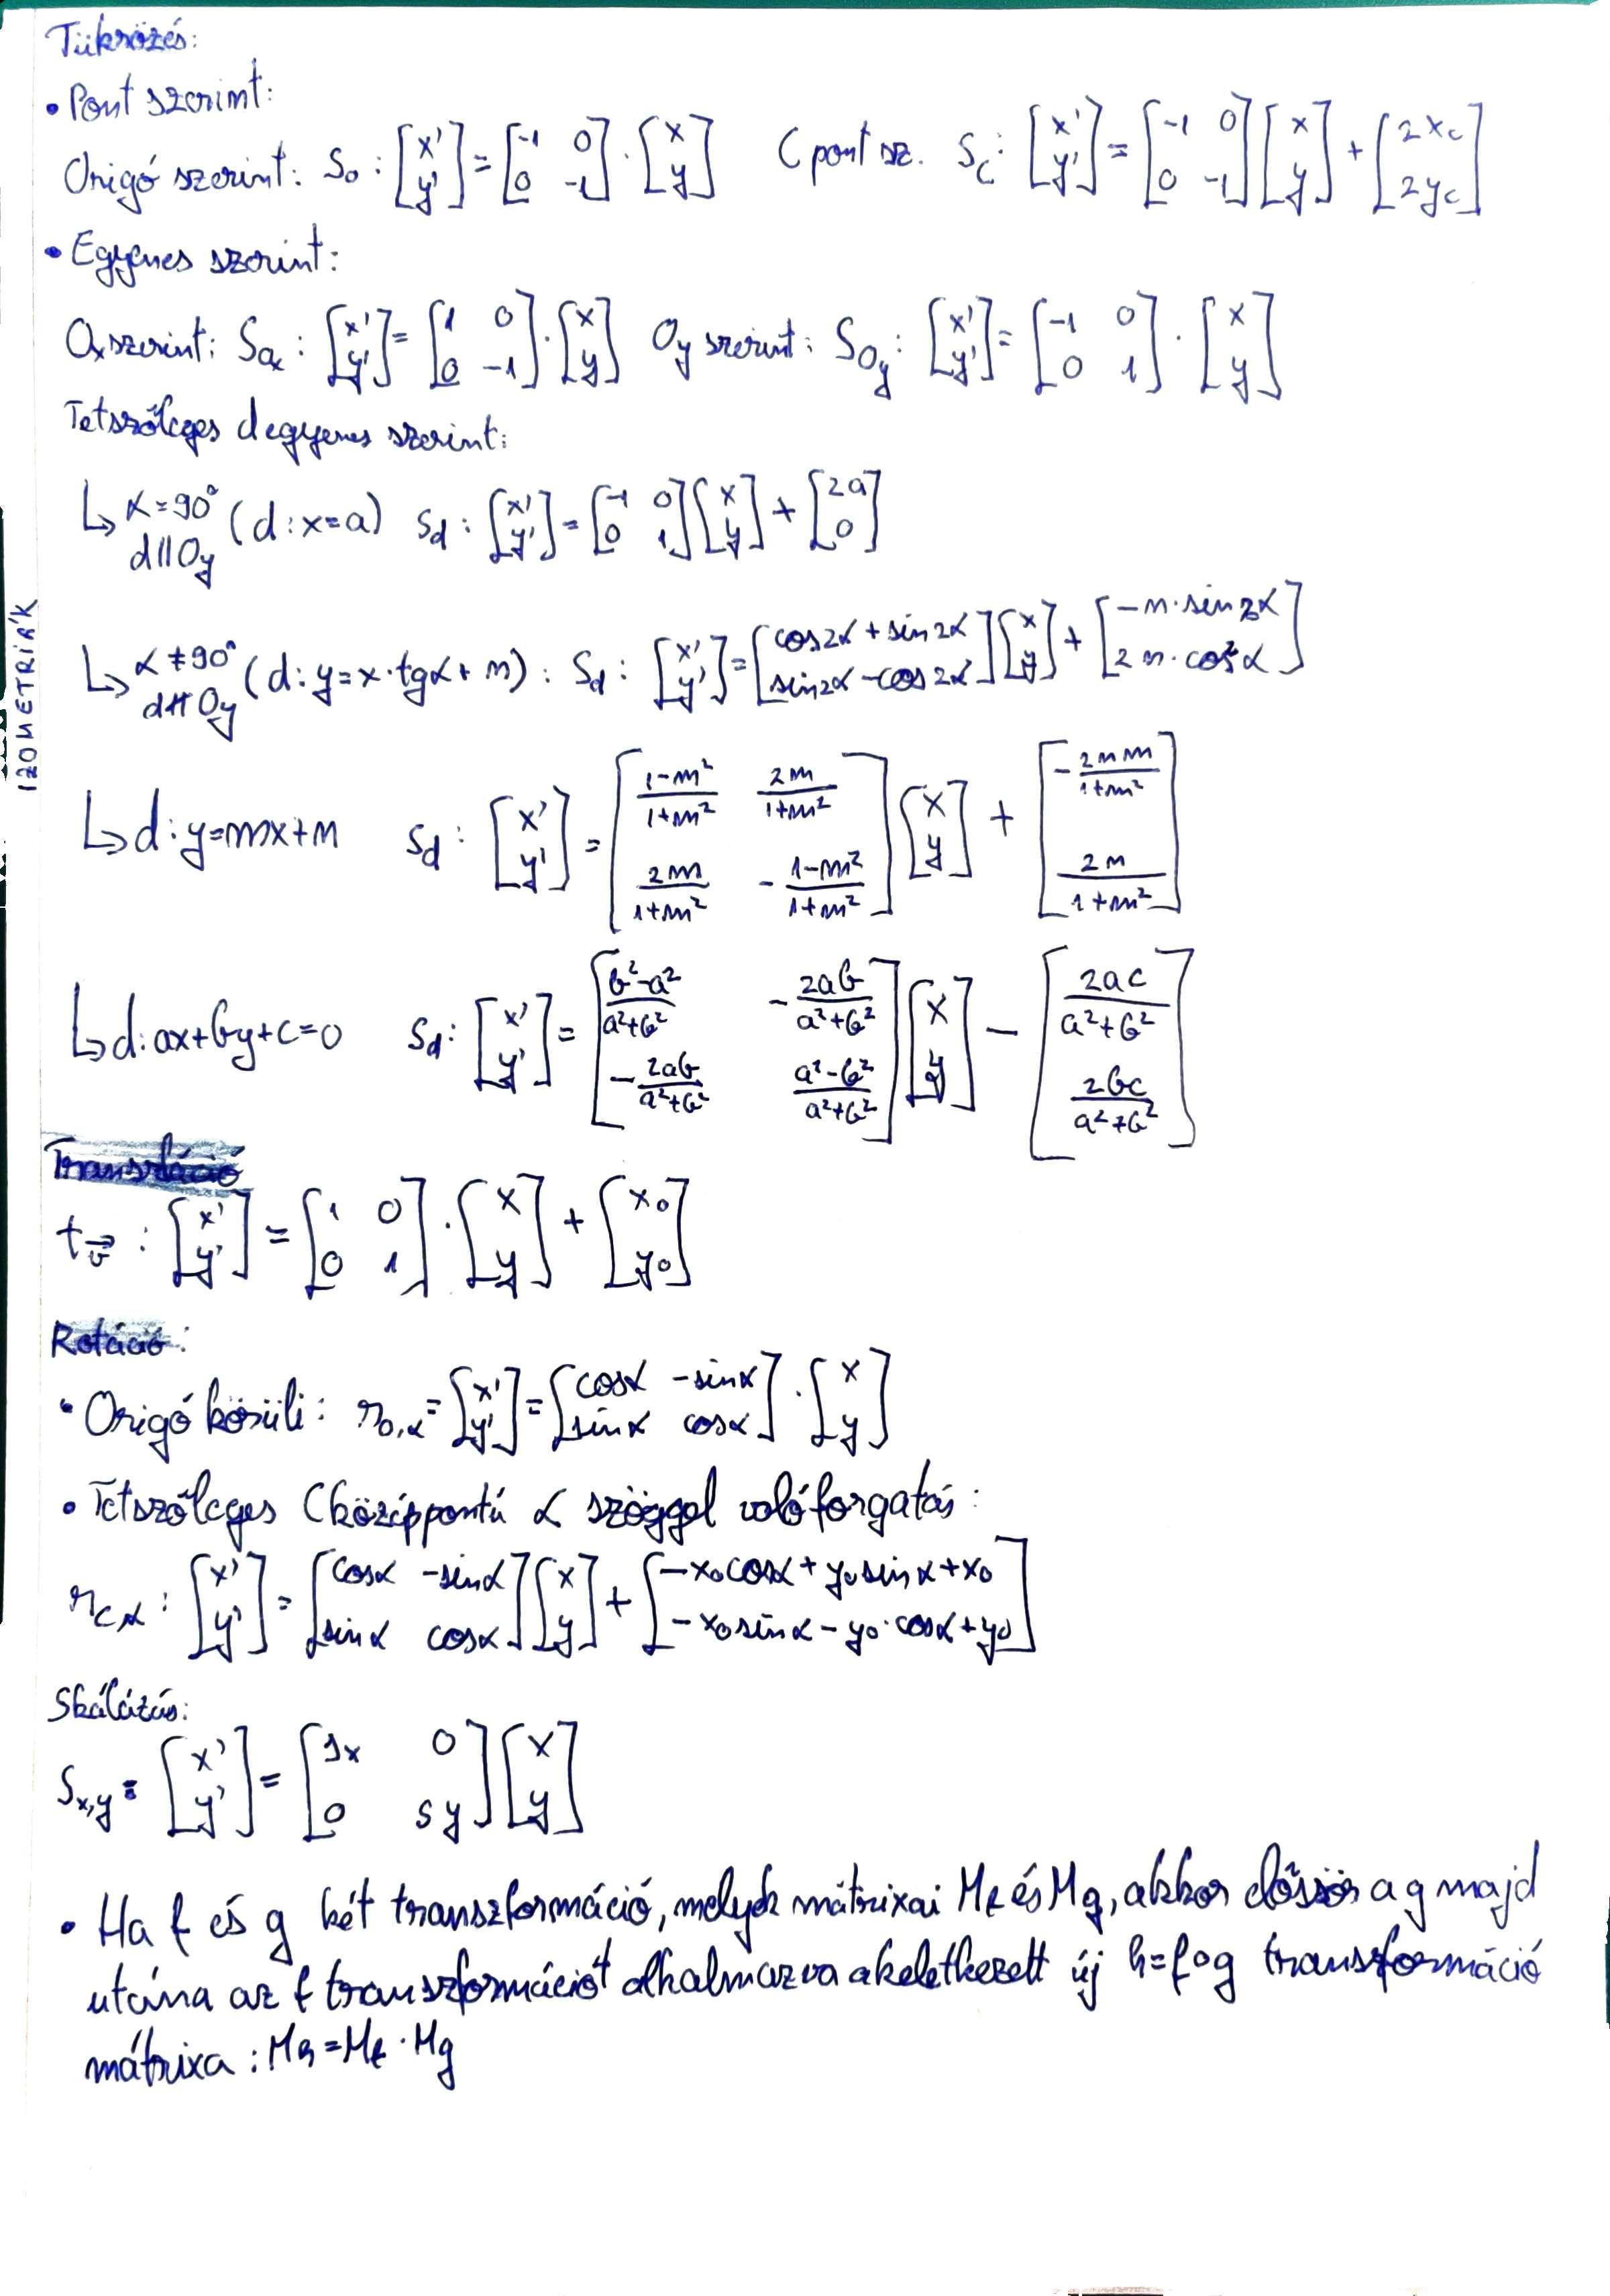 Tükrözés:
• Pont szerint:
Origó szerint: S₀ : [x' ; y'] = [-1 0 ; 0 -1] · [x ; y]   C pont sz. S_C : [x' ; y'] = [-1 0 ; 0 -1] [x ; y] + [2x_c ; 2y_c]
• Egyenes szerint:
Ox szerint: S_Ox : [x' ; y'] = [1 0 ; 0 -1] · [x ; y]   Oy szerint: S_Oy : [x' ; y'] = [-1 0 ; 0 1] · [x ; y]
Tetszőleges d egyenes szerint:
↳ α=90° d∥Oy (d: x=a) S_d : [x' ; y'] = [-1 0 ; 0 1] [x ; y] + [2a ; 0]
↳ α≠90° d∦Oy (d: y=x·tgα+n) : S_d : [x' ; y'] = [cos2α +sin2α ; sin2α -cos2α] [x ; y] + [-n·sin2α ; 2n·cos²α]
↳ d: y=mx+n   S_d : [x' ; y'] = [(1-m²)/(1+m²) 2m/(1+m²) ; 2m/(1+m²) -(1-m²)/(1+m²)] [x ; y] + [-2nm/(1+m²) ; 2n/(1+m²)]
↳ d: ax+by+c=0   S_d : [x' ; y'] = [(b²-a²)/(a²+b²) -2ab/(a²+b²) ; -2ab/(a²+b²) (a²-b²)/(a²+b²)] [x ; y] - [2ac/(a²+b²) ; 2bc/(a²+b²)]
Transzláció
t_v⃗ : [x' ; y'] = [1 0 ; 0 1] · [x ; y] + [x₀ ; y₀]
Rotáció:
• Origó körüli: r₀,α = [x' ; y'] = [cosα -sinα ; sinα cosα] · [x ; y]
• Tetszőleges C középpontú α szöggel való forgatás:
r_Cα : [x' ; y'] = [cosα -sinα ; sinα cosα] [x ; y] + [-x₀cosα + y₀sinα + x₀ ; -x₀sinα - y₀·cosα + y₀]
Skálázás:
S_x,y = [x' ; y'] = [sx 0 ; 0 sy] [x ; y]
• Ha f és g két transzformáció, melyek mátrixai Mf és Mg, akkor először a g majd
utána az f transzformációt alkalmazva a keletkezett új h=f∘g transzformáció
mátrixa : Mh=Mf·Mg
IZOMETRIÁK